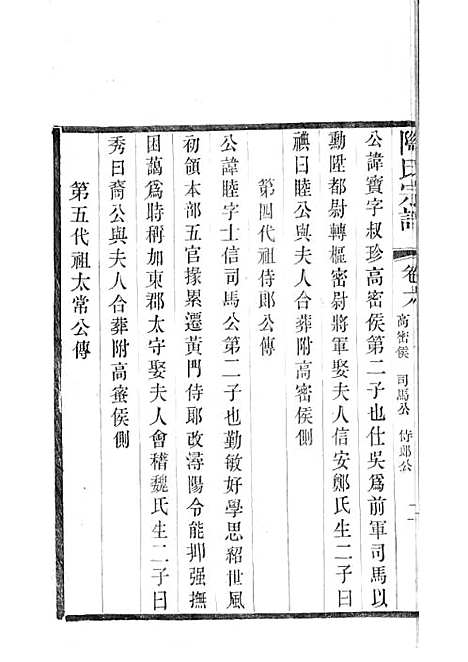 陶氏宗譜
高密侯 司馬公 侍郎公
公諱寶字叔珍高密侯第二子也仕吳爲前軍司馬以
勳陞都尉轉樞密尉將軍娶夫人信安鄭氏生二子曰
禩曰睦公與夫人合葬附高密侯側
第四代祖侍郎公傳
公諱睦字士信司馬公第二子也勤敏好學思紹世風
初領本部五官掾累遷黃門侍郎改潯陽令能抑强撫
困藹爲時稱加東郡太守娶夫人會稽魏氏生二子曰
秀曰裔公與夫人合葬附高蜜侯側
第五代祖太常公傳